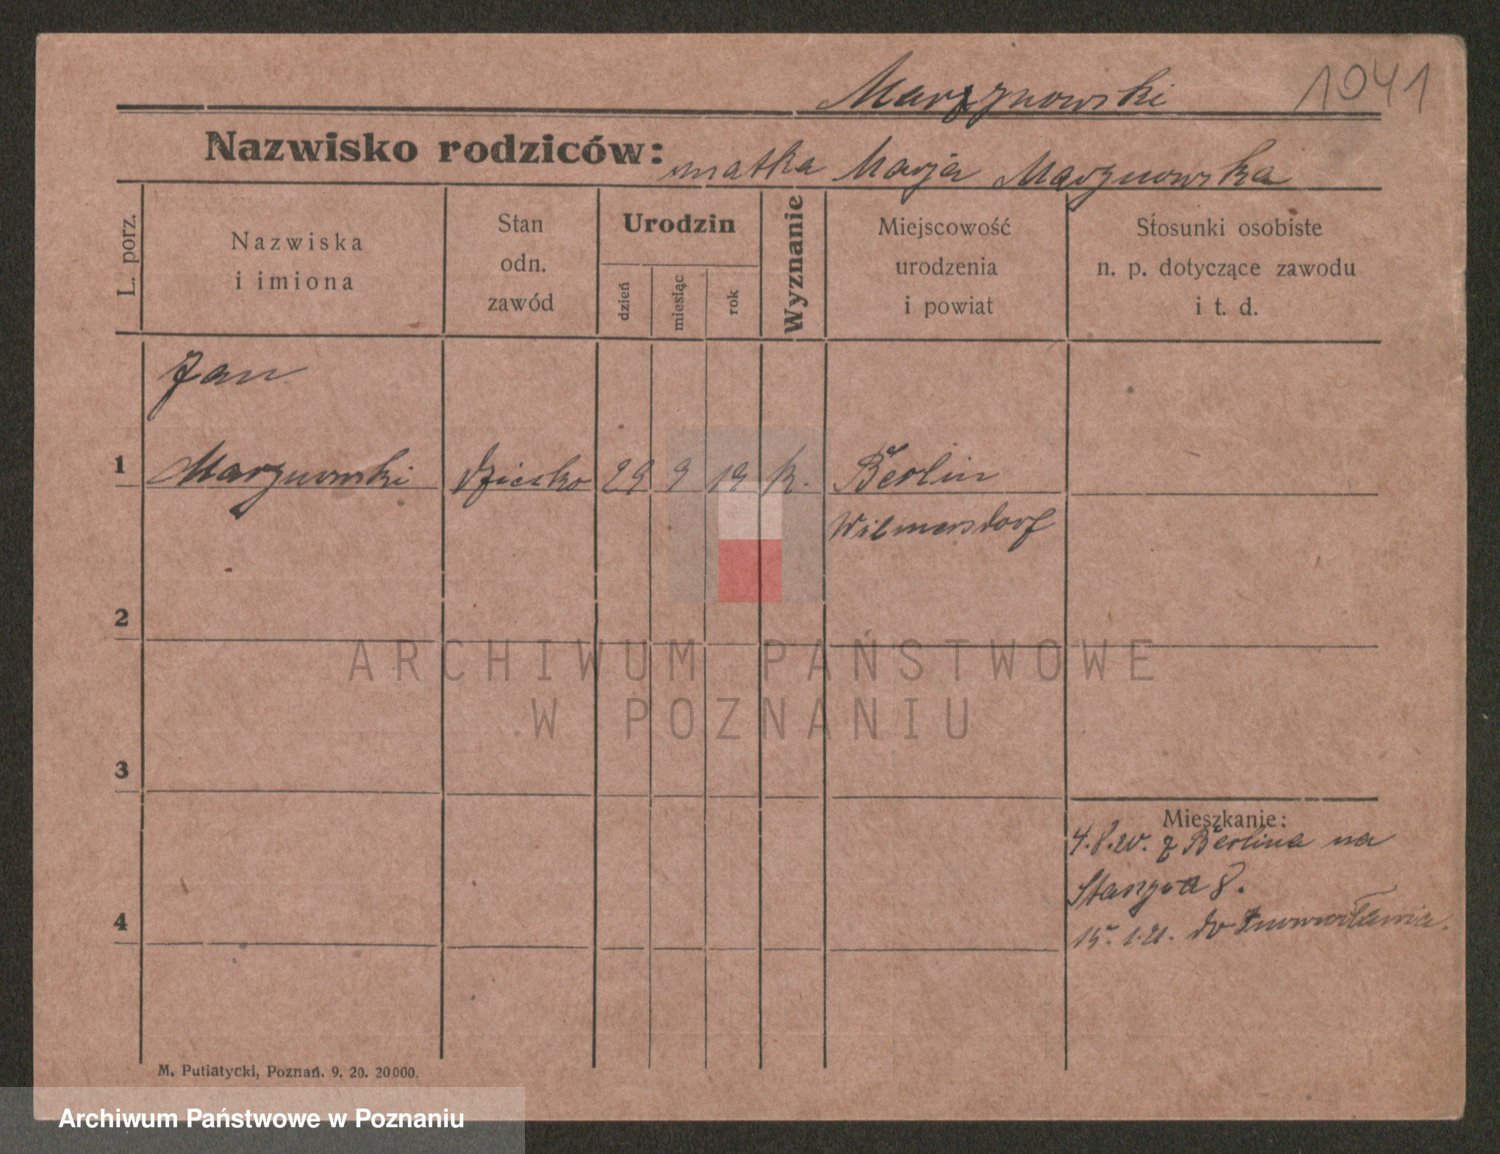 Marzynowski 1041
Nazwisko rodziców: matka Marja Marzynowska
L. porz.
Nazwiska
i imiona
Stan
odn.
zawód
Urodzin
dzień
miesiąc
rok
Wyznanie
Miejscowość
urodzenia
i powiat
Stosunki osobiste
n. p. dotyczące zawodu
i t. d.
Jan
1 Marzynowski dziecko 29 9 19 k. Berlin
Wilmersdorf
2
ARCHIWUM PAŃSTWOWE
W POZNANIU
3
Mieszkanie:
4.8.20. z Berlina na
8.
4
15.1.21. do Inowrocławia.
M. Putiatycki, Poznań. 9. 20. 20000.
Archiwum Państwowe w Poznaniu